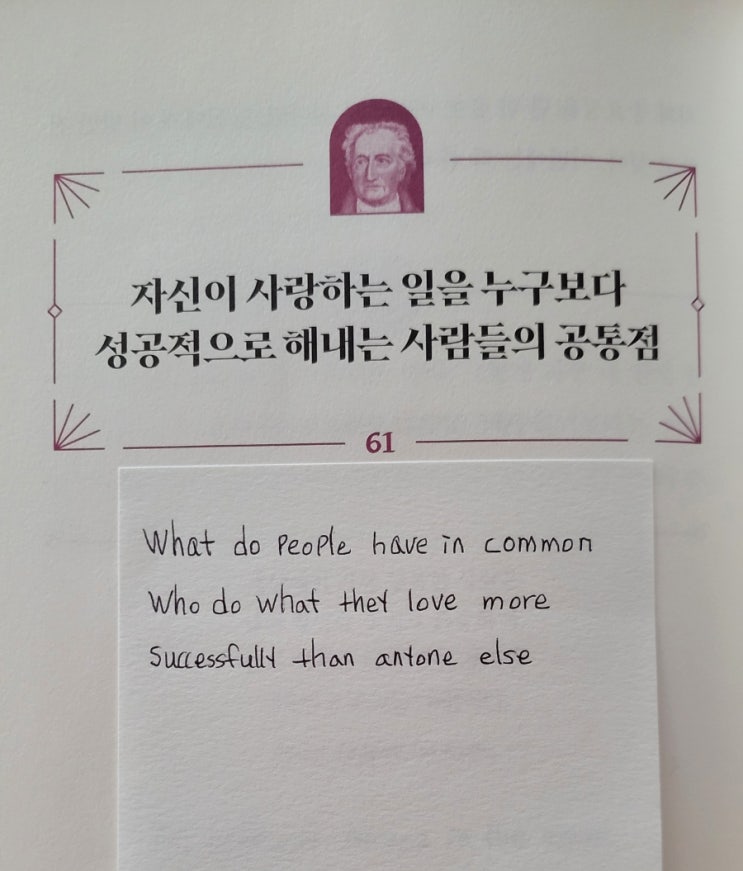 자신이 사랑하는 일을 누구보다
성공적으로 해내는 사람들의 공통점
61
What do people have in common
Who do what they love more
Successfully than anyone else